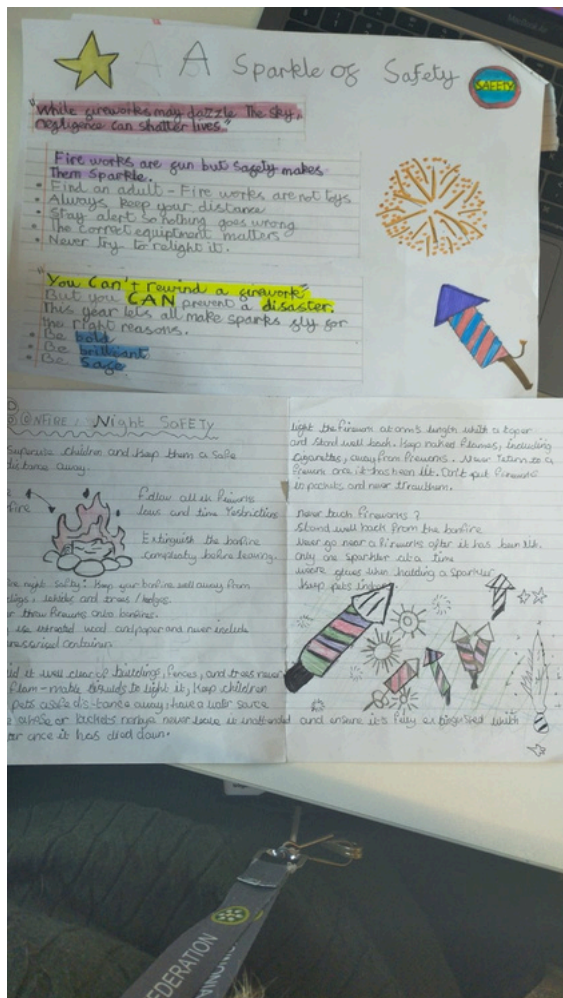 A Sparkle of Safety
SAFETY
"While fireworks may dazzle the sky,
negligence can shatter lives."
Fire works are fun but safety makes
them sparkle.
• Find an adult - Fire works are not toys
• Always keep your distance
• Stay alert so nothing goes wrong
• The correct equiptment matters
• Never try to relight it.
"You Can't rewind a firework"
But you CAN prevent a disaster.
This year lets all make sparks fly for
the right reasons.
• Be bold
• Be brilliant
• Be safe
BONFIRE Night SAFETY
Supervise children and keep them a safe
distance away.
fire
Follow all the fireworks
laws and time restrictions
Extinguish the bonfire
before leaving.
night safty: Keep your bonfire well away from
and trees / hedges.
throw fireworks onto bonfires.
wood and paper and never include
container
it well clear of buildings, fences, and trees never
to light it, keep children
pets a safe distance away; have a water source
a hose or never leave it unattended and ensure it's fully
once it has died down.
light the firework at arms length with a taper
and stand well back. Keep naked flames, including
cigarettes, away from fireworks. Never return to a
firework once it has been lit. Don't put fireworks
in pockets and never throw them.
never touch fireworks?
Stand well back from the bonfire
Never go near a fireworks after it has been lit.
only one sparkler at a time
gloves when holding a sparkler
Keep pets
FEDERATION